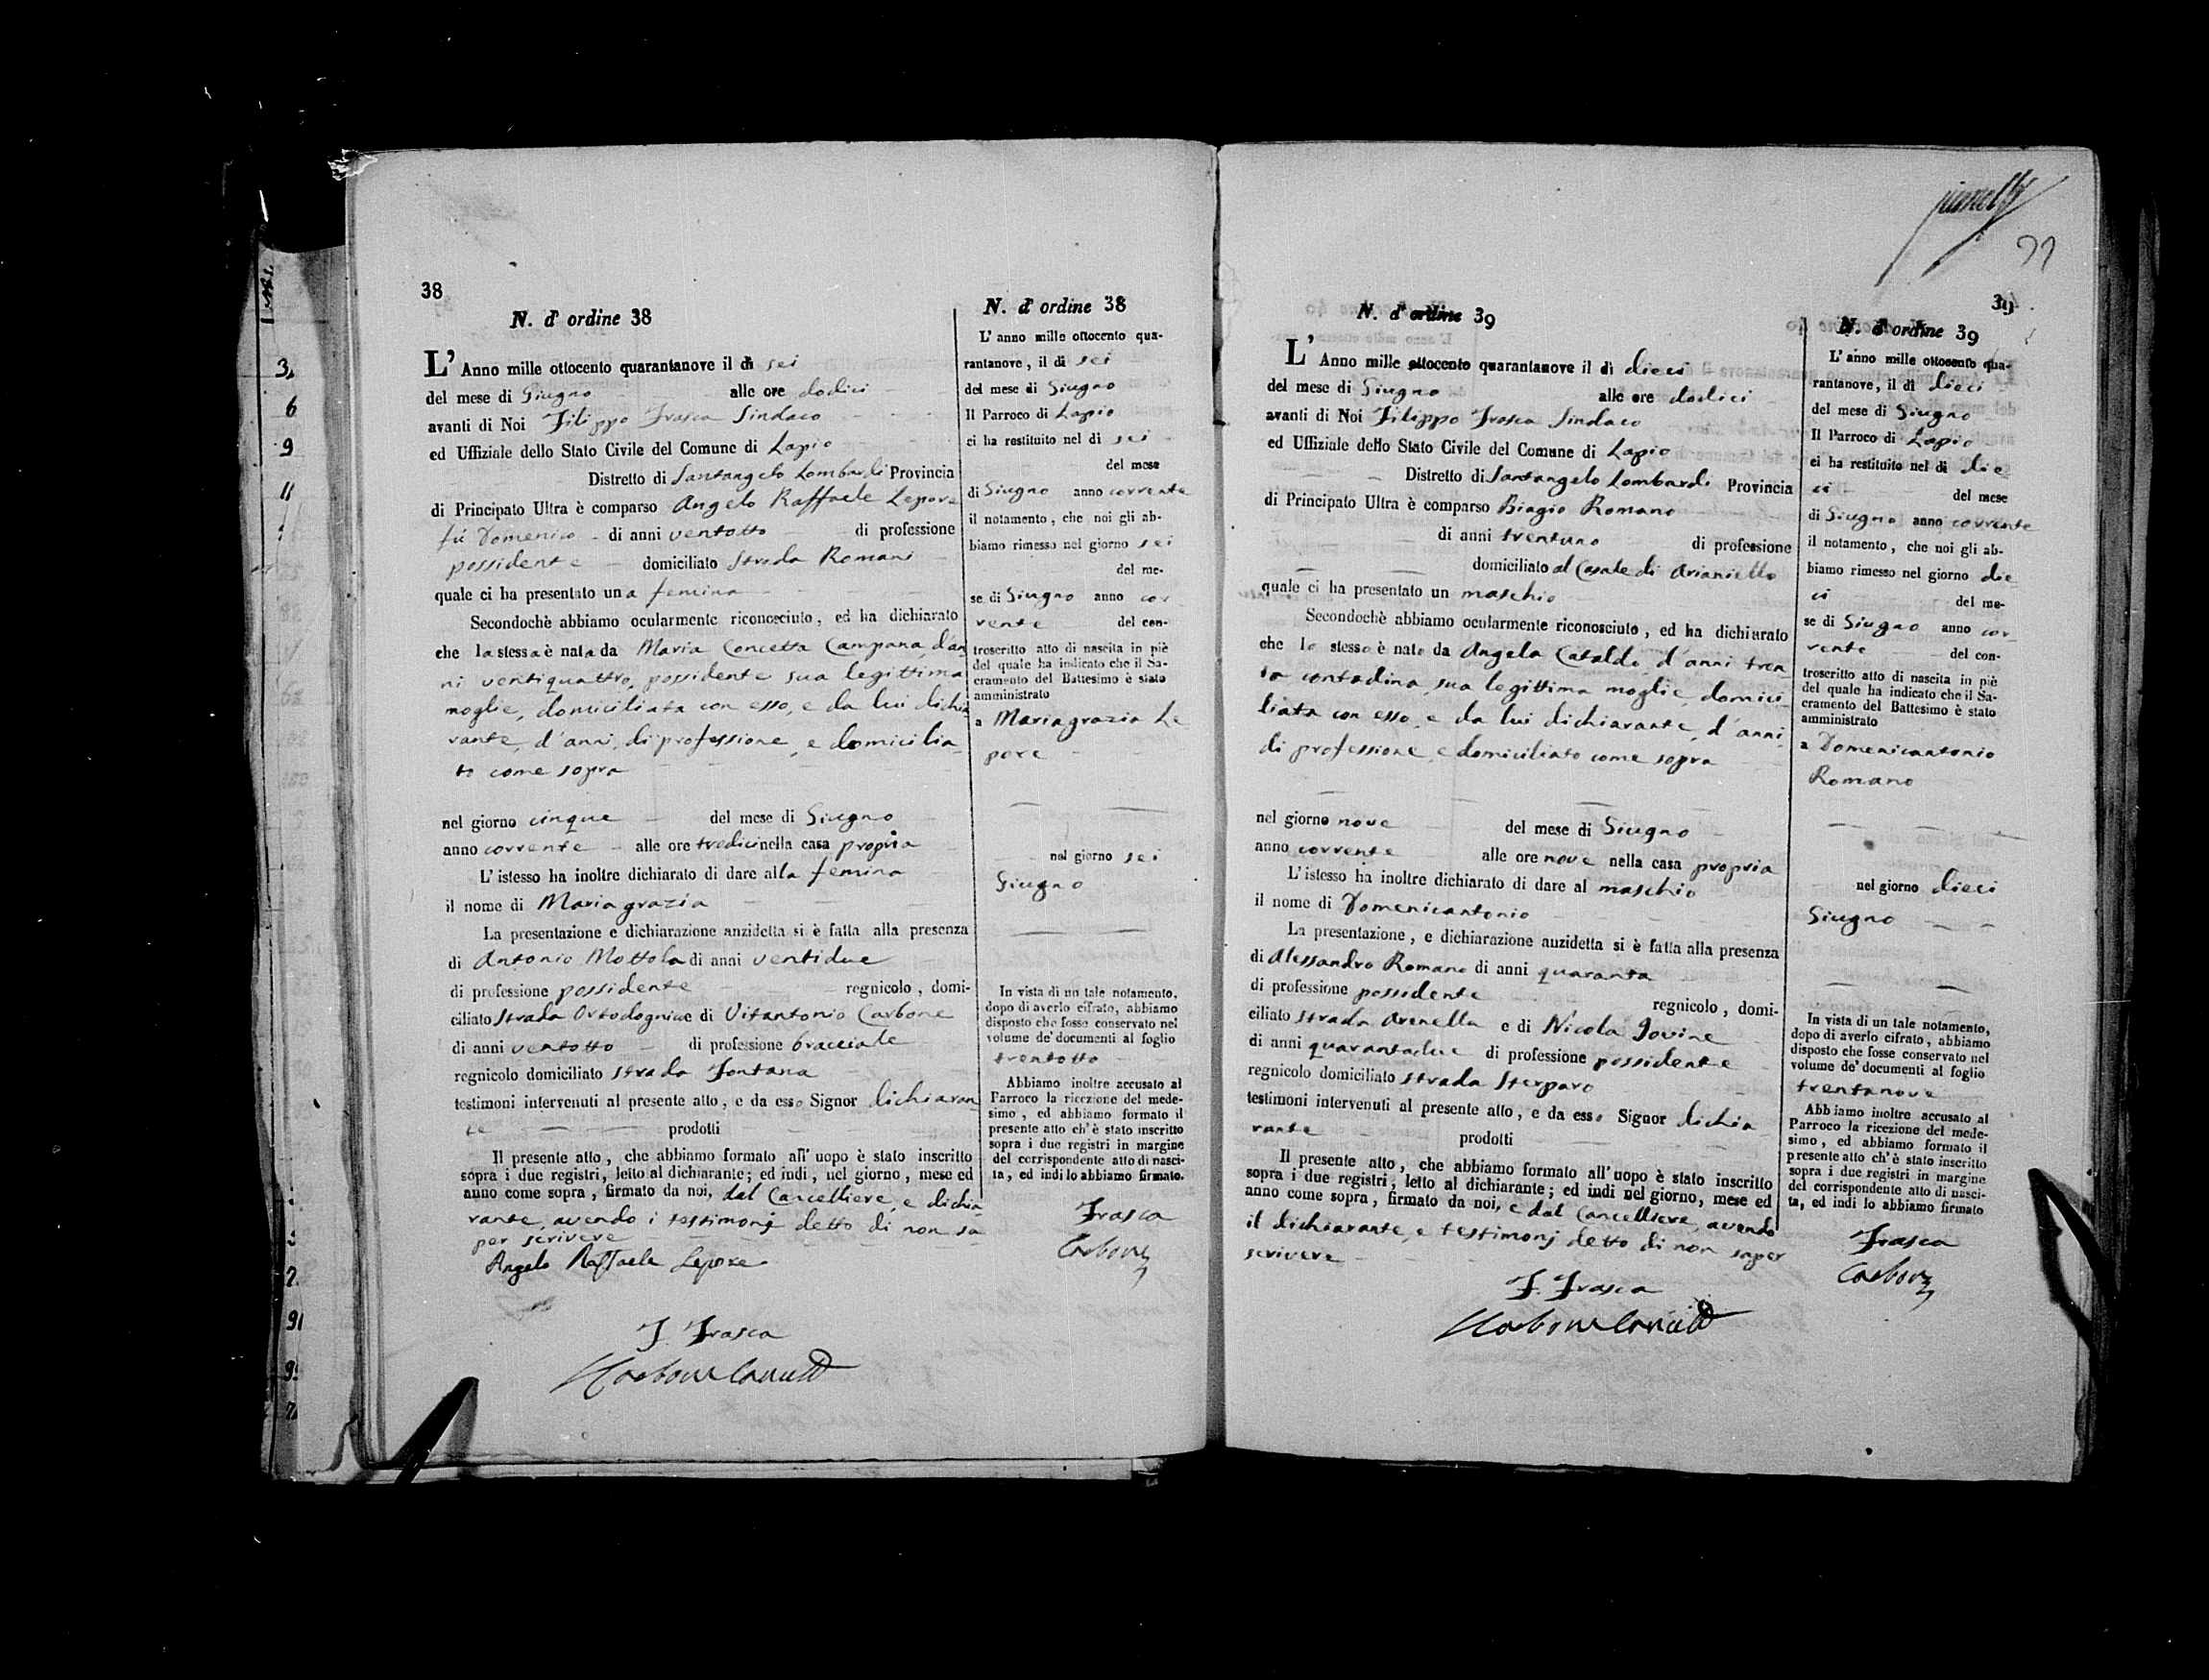 38
N. d' ordine 38
L' Anno mille ottocento quarantanove il dì sei
del mese di Giugno alle ore dodici
avanti di Noi Filippo Frasca Sindaco
ed Uffiziale dello Stato Civile del Comune di Lapio
Distretto di Santangelo Lombardi Provincia
di Principato Ultra è comparso Angelo Raffaele Lepore
fù Domenico di anni ventotto di professione
possidente domiciliato Strada Romani
quale ci ha presentato una femina
Secondochè abbiamo ocularmente riconosciuto, ed ha dichiarato
che la stessa è nata da Maria Concetta Campana, d'an
ni ventiquattro, possidente sua legittima
moglie, domiciliata con esso, e da lui dichia
rante, d'anni, di professione, e domicilia-
to come sopra
nel giorno cinque del mese di Giugno
anno corrente alle ore tredici nella casa propria
L' istesso ha inoltre dichiarato di dare alla femina
il nome di Mariagrazia
La presentazione e dichiarazione anzidetta si è fatta alla presenza
di Antonio Mottola di anni ventidue
di professione possidente regnicolo, domi-
ciliato Strada e di Vitantonio Carbone
di anni ventotto di professione bracciale
regnicolo domiciliato strada Fontana
testimoni intervenuti al presente atto, e da esso Signor dichiaran
te prodotti
Il presente atto, che abbiamo formato all' uopo è stato inscritto
sopra i due registri, letto al dichiarante; ed indi, nel giorno, mese ed
anno come sopra, firmato da noi, dal Cancelliere, e dichia
rante, avendo i testimonj detto di non sa-
per scrivere
Angelo Raffaele Lepore
F. Frasca
N. d' ordine 38
L' anno mille ottocento qua-
rantanove, il dì sei
del mese di Giugno
Il Parroco di Lapio
ci ha restituito nel dì sei
del mese
di Giugno anno corrente
il notamento, che noi gli ab-
biamo rimesso nel giorno sei
del me-
se di Giugno anno cor
rente del con-
troscritto atto di nascita in piè
del quale ha indicato che il Sa-
cramento del Battesimo è stato
amministrato
a Mariagrazia Le
pore
nel giorno sei
Giugno
In vista di un tale notamento,
dopo di averlo cifrato, abbiamo
disposto che fosse conservato nel
volume de' documenti al foglio
trentotto
Abbiamo inoltre accusato al
Parroco la ricezione del mede-
simo, ed abbiamo formato il
presente atto ch' è stato inscritto
sopra i due registri in margine
del corrispondente atto di nasci-
ta, ed indi lo abbiamo firmato.
Frasca
Carbone
39
N. d' ordine 39
L' Anno mille ottocento quarantanove il dì dieci
del mese di Giugno alle ore dodici
avanti di Noi Filippo Frasca Sindaco
ed Uffiziale dello Stato Civile del Comune di Lapio
Distretto di Santangelo Lombardi Provincia
di Principato Ultra è comparso Biagio Romano
di anni trentuno di professione
domiciliato al Casale di Arianiello
quale ci ha presentato un maschio
Secondochè abbiamo ocularmente riconosciuto, ed ha dichiarato
che lo stesso è nato da Angela Cataldo, d'anni tren-
ta contadina, sua legittima moglie, domici-
liata con esso, e da lui dichiarante, d'anni,
di professione, e domiciliato come sopra
nel giorno nove del mese di Giugno
anno corrente alle ore nove nella casa propria
L' istesso ha inoltre dichiarato di dare al maschio
il nome di Domenicantonio
La presentazione, e dichiarazione anzidetta si è fatta alla presenza
di Alessandro Romano di anni quaranta
di professione possidente regnicolo, domi-
ciliato strada Arenella e di Nicola Jovine
di anni quarantadue di professione possidente
regnicolo domiciliato strada Sterparo
testimoni intervenuti al presente atto, e da esso Signor dichia
rante prodotti
Il presente atto, che abbiamo formato all' uopo è stato inscritto
sopra i due registri, letto al dichiarante; ed indi nel giorno, mese ed
anno come sopra, firmato da noi, e dal Cancelliere, avendo
il dichiarante, e testimonj detto di non saper
scrivere
F. Frasca
N. d' ordine 39
L' anno mille ottocento qua-
rantanove, il dì dieci
del mese di Giugno
Il Parroco di Lapio
ci ha restituito nel dì die
ci del mese
di Giugno anno corrente
il notamento, che noi gli ab-
biamo rimesso nel giorno die
ci del me-
se di Giugno anno cor-
rente del con-
troscritto atto di nascita in piè
del quale ha indicato che il Sa-
cramento del Battesimo è stato
amministrato
a Domenicantonio
Romano
nel giorno dieci
Giugno
In vista di un tale notamento,
dopo di averlo cifrato, abbiamo
disposto che fosse conservato nel
volume de' documenti al foglio
trentanove
Abbiamo inoltre accusato al
Parroco la ricezione del mede-
simo, ed abbiamo formato il
presente atto ch' è stato inscritto
sopra i due registri in margine
del corrispondente atto di nasci-
ta, ed indi lo abbiamo firmato
Frasca
Carbone